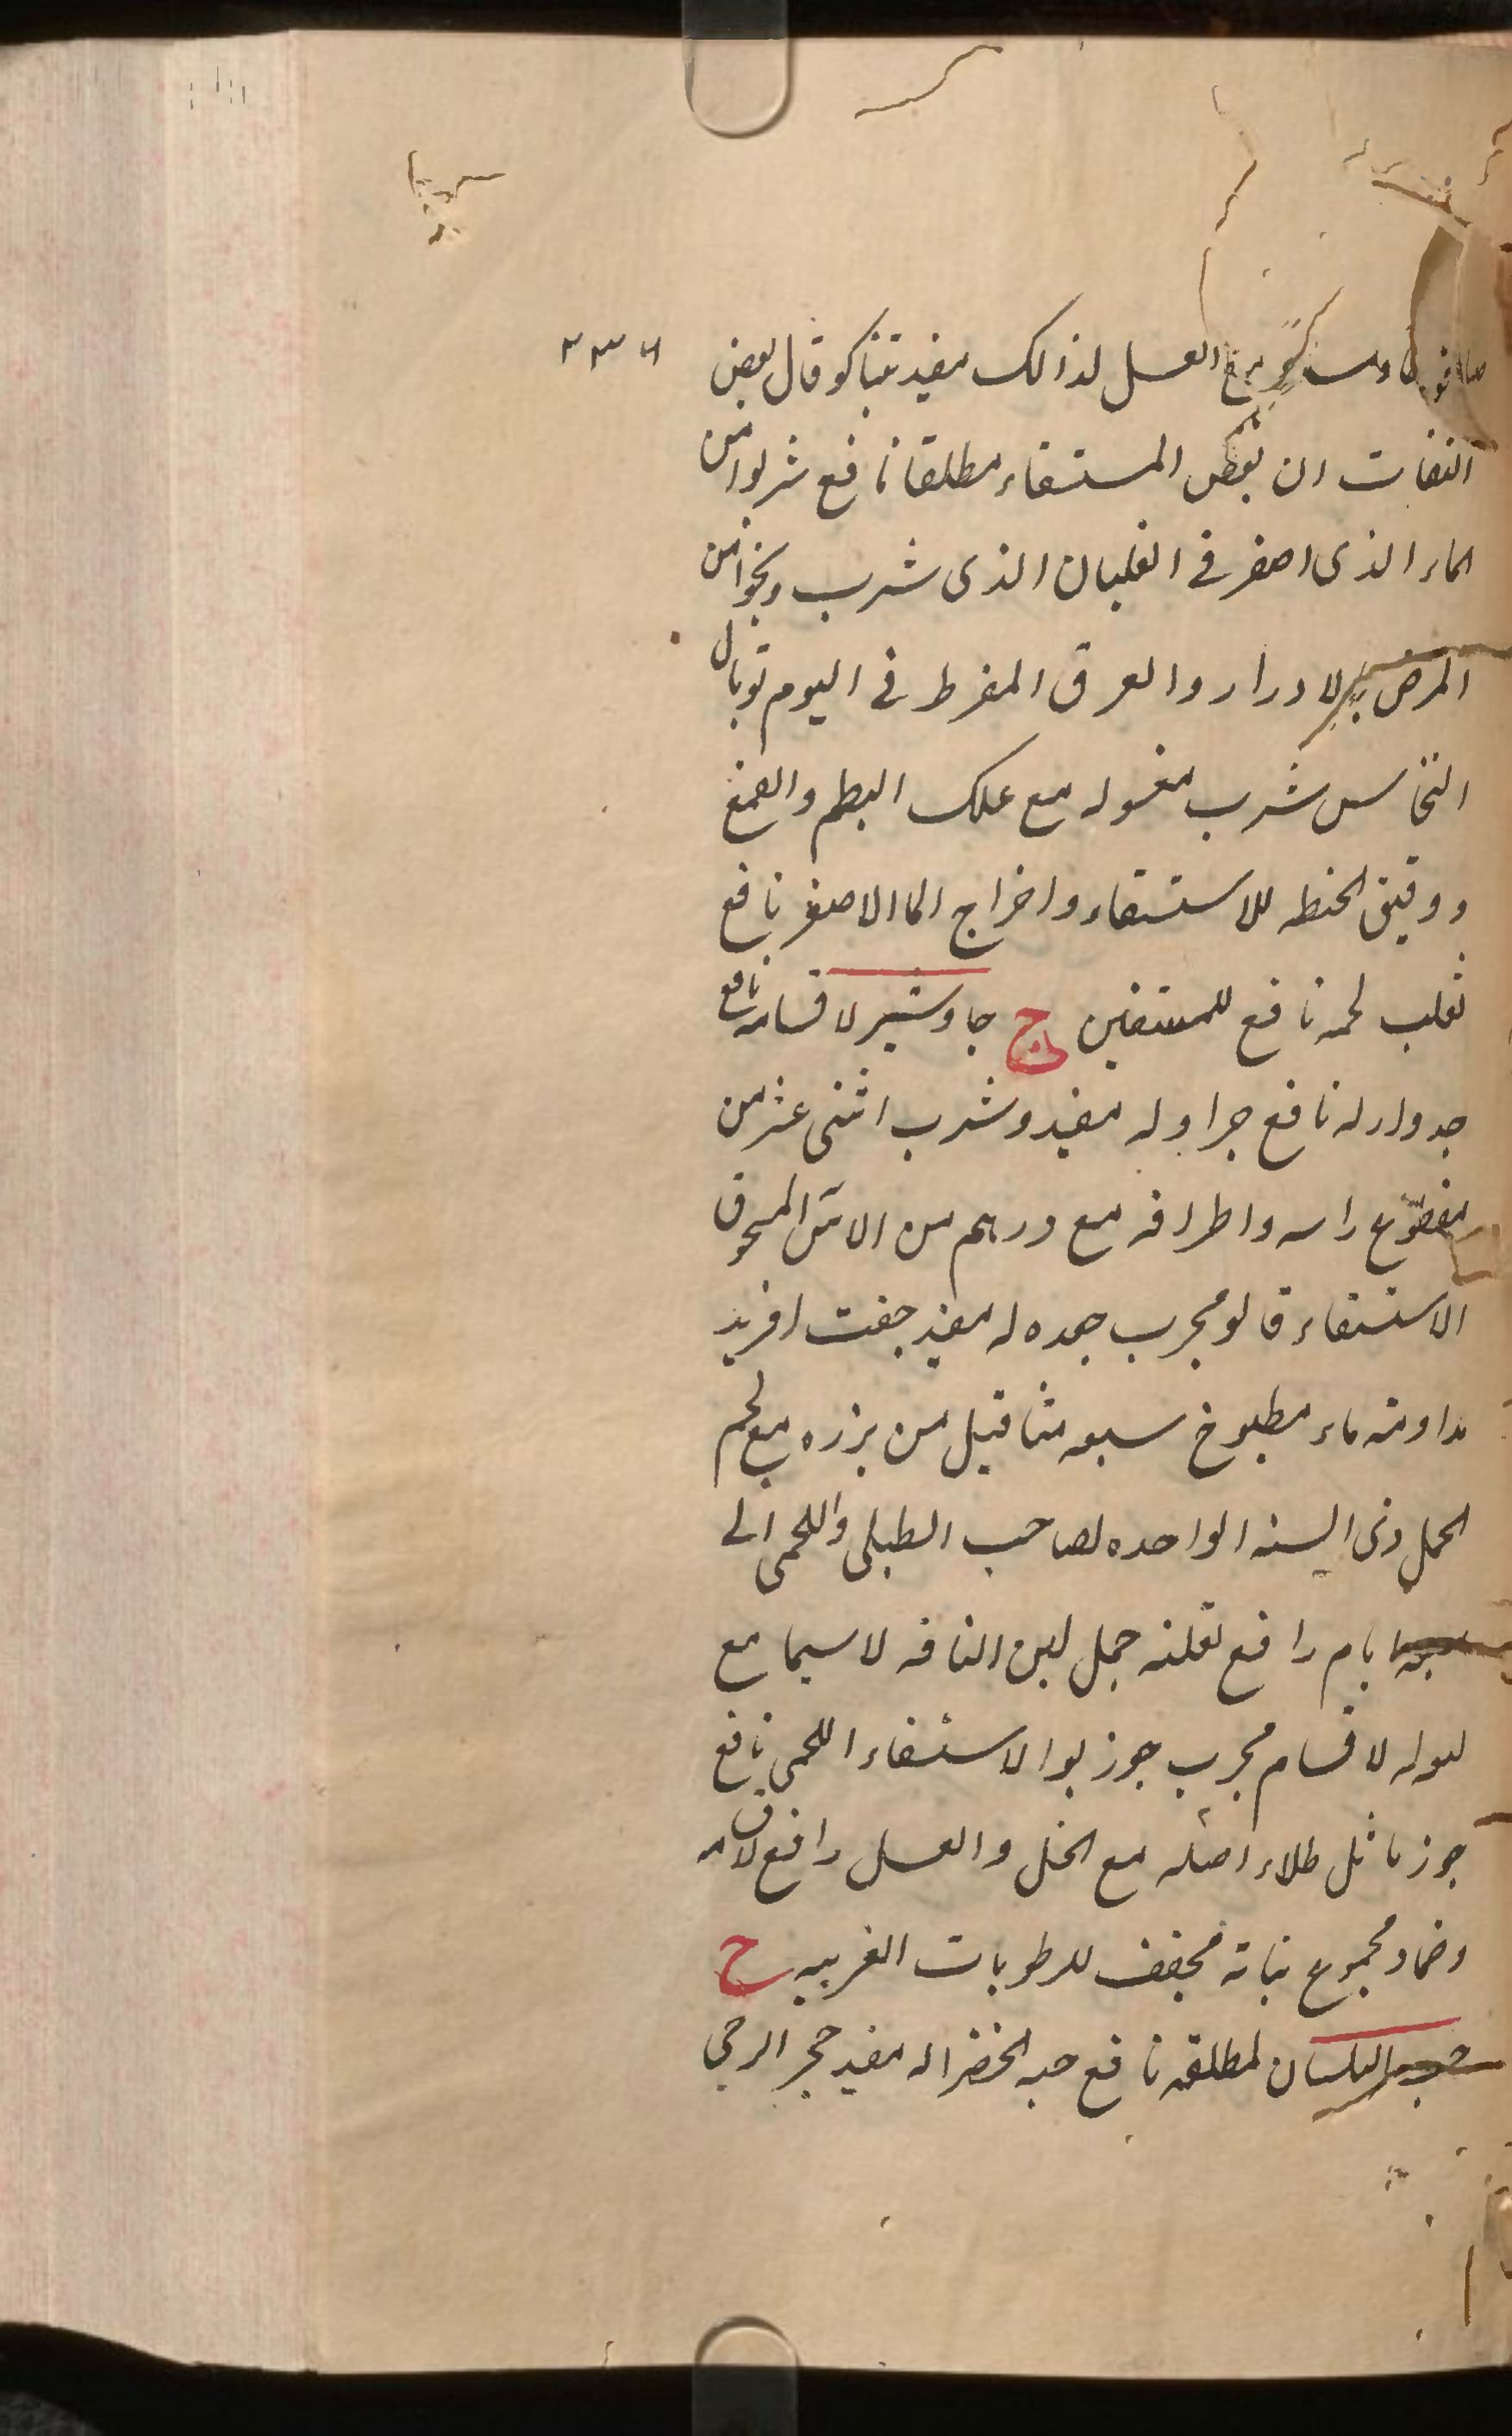 العسل لذالك مفيد تنباكو قال بعض ٢٣٦
الثقات ان بعض المستسقاء مطلقا نافع شربوا من
الماء الذى اصفر فى الغليان الذى شرب ونجوا من
المرض بالادرار والعرق المفرط فى اليوم توبال
النحاس شرب مغسوله مع علك البطم والصمغ
ودقيق الحنطه للاستسقاء واخراج الماالاصفر نافع
ثعلب لحمه نافع للمستسقين ج جاوشير لاقسامه نافع
جدوار له نافع جراد له مفيد وشرب اثنى عشر من
مقطوع راسه واطرافه مع درهم من الآس المسحوق
الاستسقاء قالو مجرب جعده له مفيد جفت افريد
مداومته ماء مطبوخ سبعه مثاقيل من بزره مع لحم
الحمل ذى السنه الواحده لصاحب الطبلى واللحمى الى
سبعه ايام رافع لعلته جمل لبن الناقه لاسيما مع
بوله لاقسام مجرب جوز بوا الاستسقاء اللحمى نافع
جوز ماثل طلاء اصله مع الخل والعسل رافع لاقسامه
وضماد مجموع نباته مجفف للرطوبات الغريبه ح
حب البلسان لمطلقه نافع حبه الخضرا له مفيد حجر الرحى